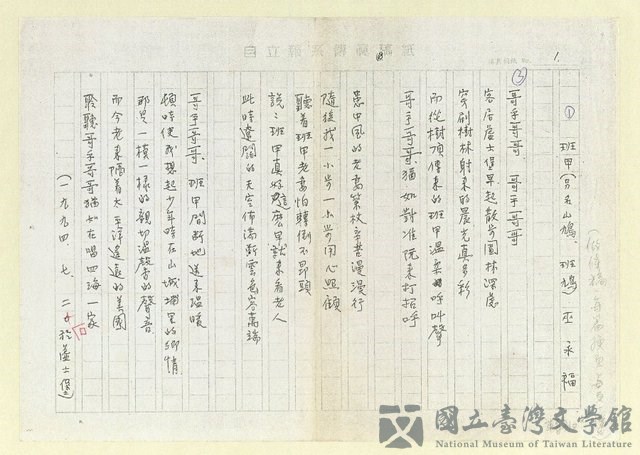 1.
① 班甲(另名山鳩、班鳩) 巫永福
③ 哥乎哥哥 哥乎哥哥
客居屋士堡早起散步園林深處
穿刷樹林射來的晨光真多彩
而從樹頂傳來的班甲溫柔呼叫聲
哥乎哥哥、猶如對准阮來打招呼
患中風的老妻策杖辛苦漫漫行
隨後我一小步一小步用心照顧
聽着班甲老妻怕轉倒不昂頭
說:班甲真好這麼甲就來看老人
此時遼闊的天空佈滿斷雲高岑萬端
哥乎哥哥、班甲間斷地送來溫暖
頓時使我想起少年時在山城埔里的鄉情
那是一模一樣的親切溫馨的聲音
而今老來隔着太平洋遙遠的美國
聆聽哥乎哥哥猶如在唱四海一家
(一九九四、七、二 於 士堡)
國立臺灣文學館
National Museum of Taiwan Literature